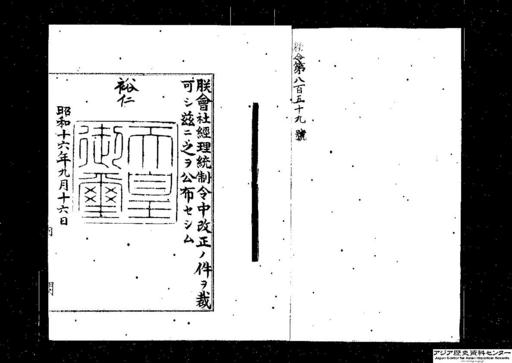 勅令第八百五十九號
朕會社經理統制令中改正ノ件ヲ裁
可シ玆ニ之ヲ公布セシム
裕仁
天皇
御璽
昭和十六年九月十六日
アジア歴史資料センター
Japan Center for Asian Historical Records